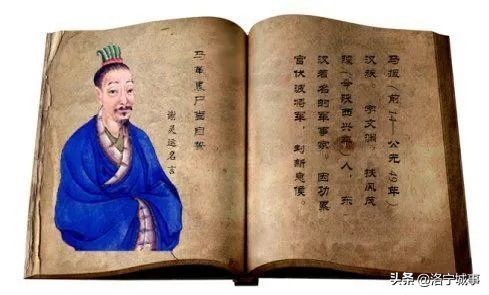 马援（前14——公元49年）
汉族 字文渊 扶风茂
陵（今陕西兴平）人，东
汉着名的军事家，因功累
官伏波将军，封新息侯。
马革裹尸当自誓
谢灵运名言
头条 @洛宁城事